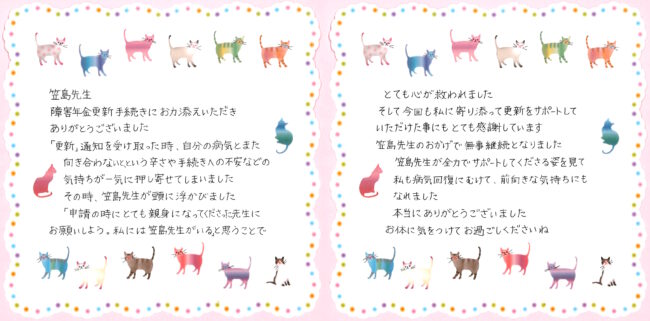 笠島先生
障害年金更新手続きにお力添えいただき
ありがとうございました
「更新」通知を受け取った時、自分の病気とまた
向き合わないとという辛さや手続きへの不安などの
気持ちが一気に押し寄せてしまいました
その時、笠島先生が頭に浮かびました
「申請の時にとても親身になってくださった先生に
お願いしよう。私には笠島先生がいると思うことで
とても心が救われました
そして今回も私に寄り添って更新をサポートして
いただけた事にもとても感謝しています
笠島先生のおかげで無事継続となりました
笠島先生が全力でサポートしてくださる姿を見て
私も病気回復にむけて、前向きな気持ちにも
なれました
本当にありがとうございました
お体に気をつけてお過ごしくださいね